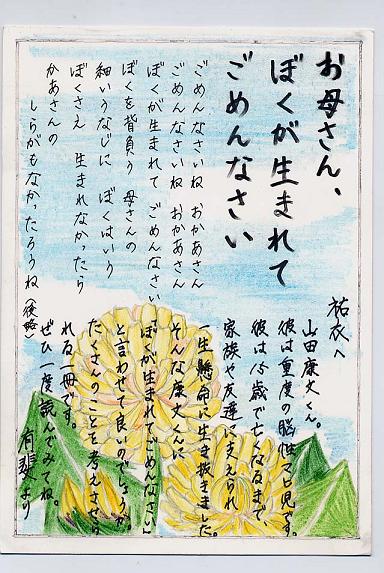 お母さん、
ぼくが生まれて
ごめんなさい
ごめんなさいね　おかあさん
ごめんなさいね　おかあさん
ぼくが生まれて　ごめんなさい
ぼくを背負う　母さんの
細いうなじに　ぼくはいう
ぼくさえ　生まれなかったら
かあさんの
しらがもなかったろうね（後略）
祐衣へ
山田康文くん。
彼は重度の脳性マヒ児です。
彼は15歳で亡くなるまで
家族や友達に支えられ
一生懸命に生き抜きました。
そんな康文くんに
「ぼくが生まれてごめんなさい」
と言わせて良いのでしょうか。
たくさんのことを考えさせら
れる一冊です。
ぜひ一度読んでみてね。
有斐より